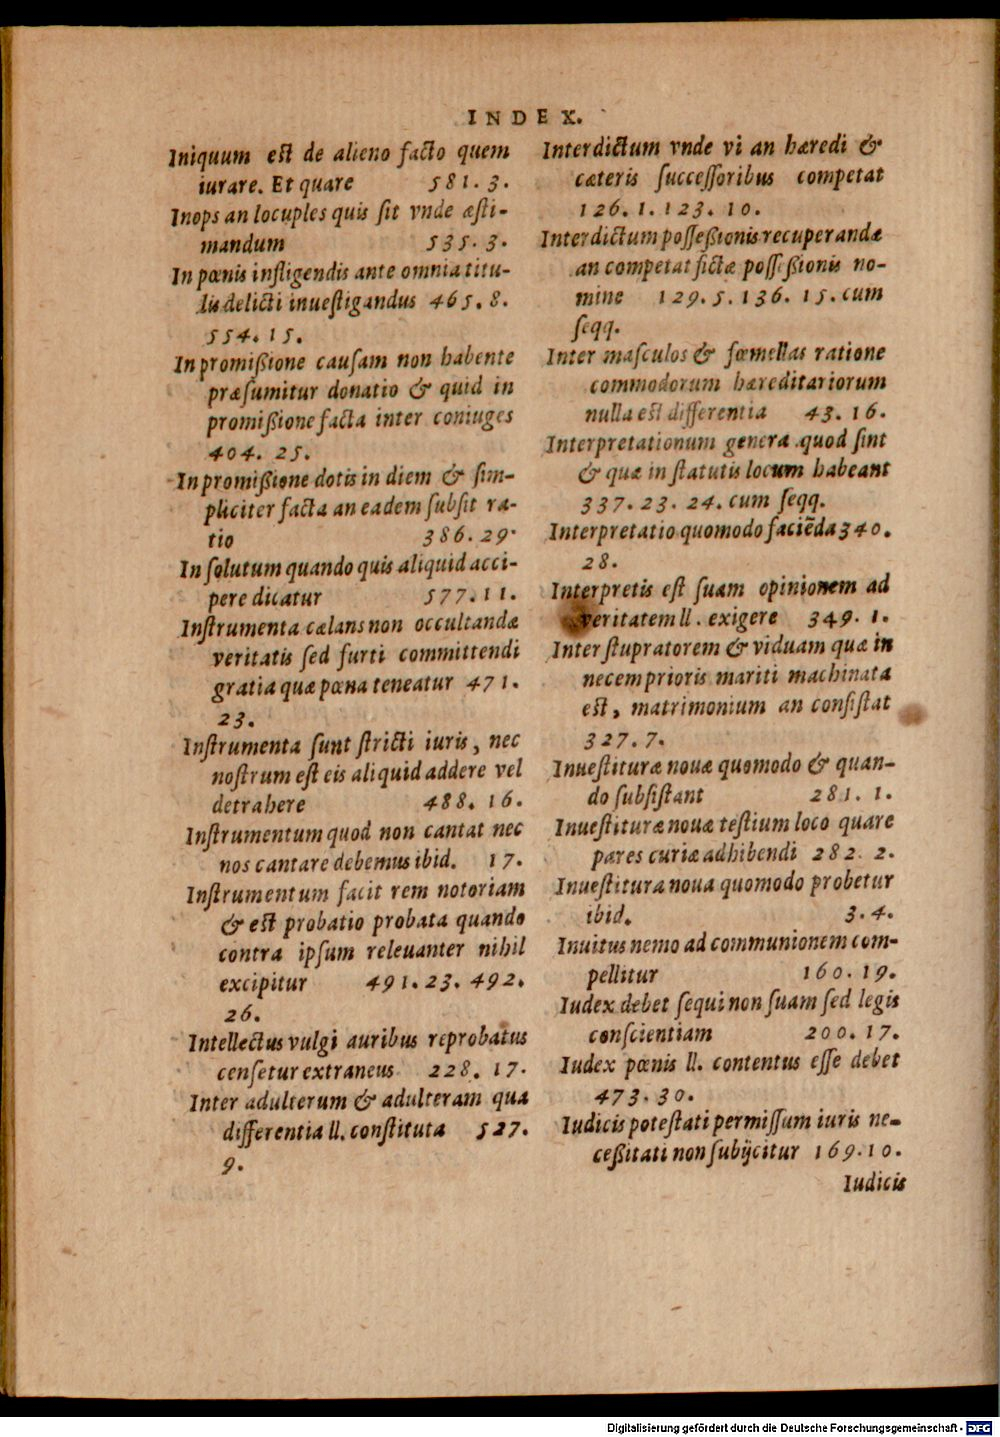 INDEX.
Iniquum est de alieno facto quem
iurare. Et quare 581. 3.
Inops an locuples quis ſit vnde æſti-
mandum 535. 3.
In pœnis infligendis ante omnia titu-
lis delicti inueſtigandus 465. 8.
554. 15.
In promißione cauſam non habente
præſumitur donatio & quid in
promißione facta inter coniuges
404. 25.
In promißione dotis in diem & ſim-
pliciter facta an eadem ſubſit ra-
tio 386. 29.
In ſolutum quando quis aliquid acci-
pere dicatur 577. 11.
Inſtrumenta cælans non occultandæ
veritatis ſed furti committendi
gratia qua pœna teneatur 471.
23.
Inſtrumenta ſunt ſtricti iuris, nec
noſtrum eſt eis aliquid addere vel
detrahere 488. 16.
Inſtrumentum quod non cantat nec
nos cantare debemus ibid. 17.
Inſtrumentum facit rem notoriam
& est probatio probata quando
contra ipſum releuanter nihil
excipitur 491. 23. 492.
26.
Intellectus vulgi auribus reprobatus
cenſetur extraneus 228. 17.
Inter adulterum & adulteram qua
differentia ll. conſtituta 527.
9.
Interdictum vnde vi an hæredi &
cæteris ſucceſſoribus competat
126. 1. 123. 10.
Interdictum poſſeßionis recuperandæ
an competat fictæ poſſeßionis no-
mine 129. 5. 136. 15. cum
ſeqq.
Inter maſculos & fœmellas ratione
commodorum hæreditariorum
nulla est differentia 43. 16.
Interpretationum genera quod ſint
& quæ in ſtatutis locum habeant
337. 23. 24. cum ſeqq.
Interpretatio quomodo faciẽda 340.
28.
Interpretis eſt ſuam opinionem ad
veritatem ll. exigere 349. 1.
Inter ſtupratorem & viduam quæ in
necem prioris mariti machinata
est, matrimonium an conſiſtat
327. 7.
Inueſtituræ nouæ quomodo & quan-
do ſubſiſtant 281. 1.
Inueſtituræ nouæ teſtium loco quare
pares curiæ adhibendi 282. 2.
Inueſtitura noua quomodo probetur
ibid. 3. 4.
Inuitus nemo ad communionem com-
pellitur 160. 19.
Iudex debet ſequi non ſuam ſed legis
conſcientiam 200. 17.
Iudex pœnis ll. contentus eſſe debet
473. 30.
Iudicis poteſtati permiſſum iuris ne-
ceßitati non ſubijcitur 169. 10.
Iudicis
Digitalisierung gefördert durch die Deutsche Forschungsgemeinschaft - DFG